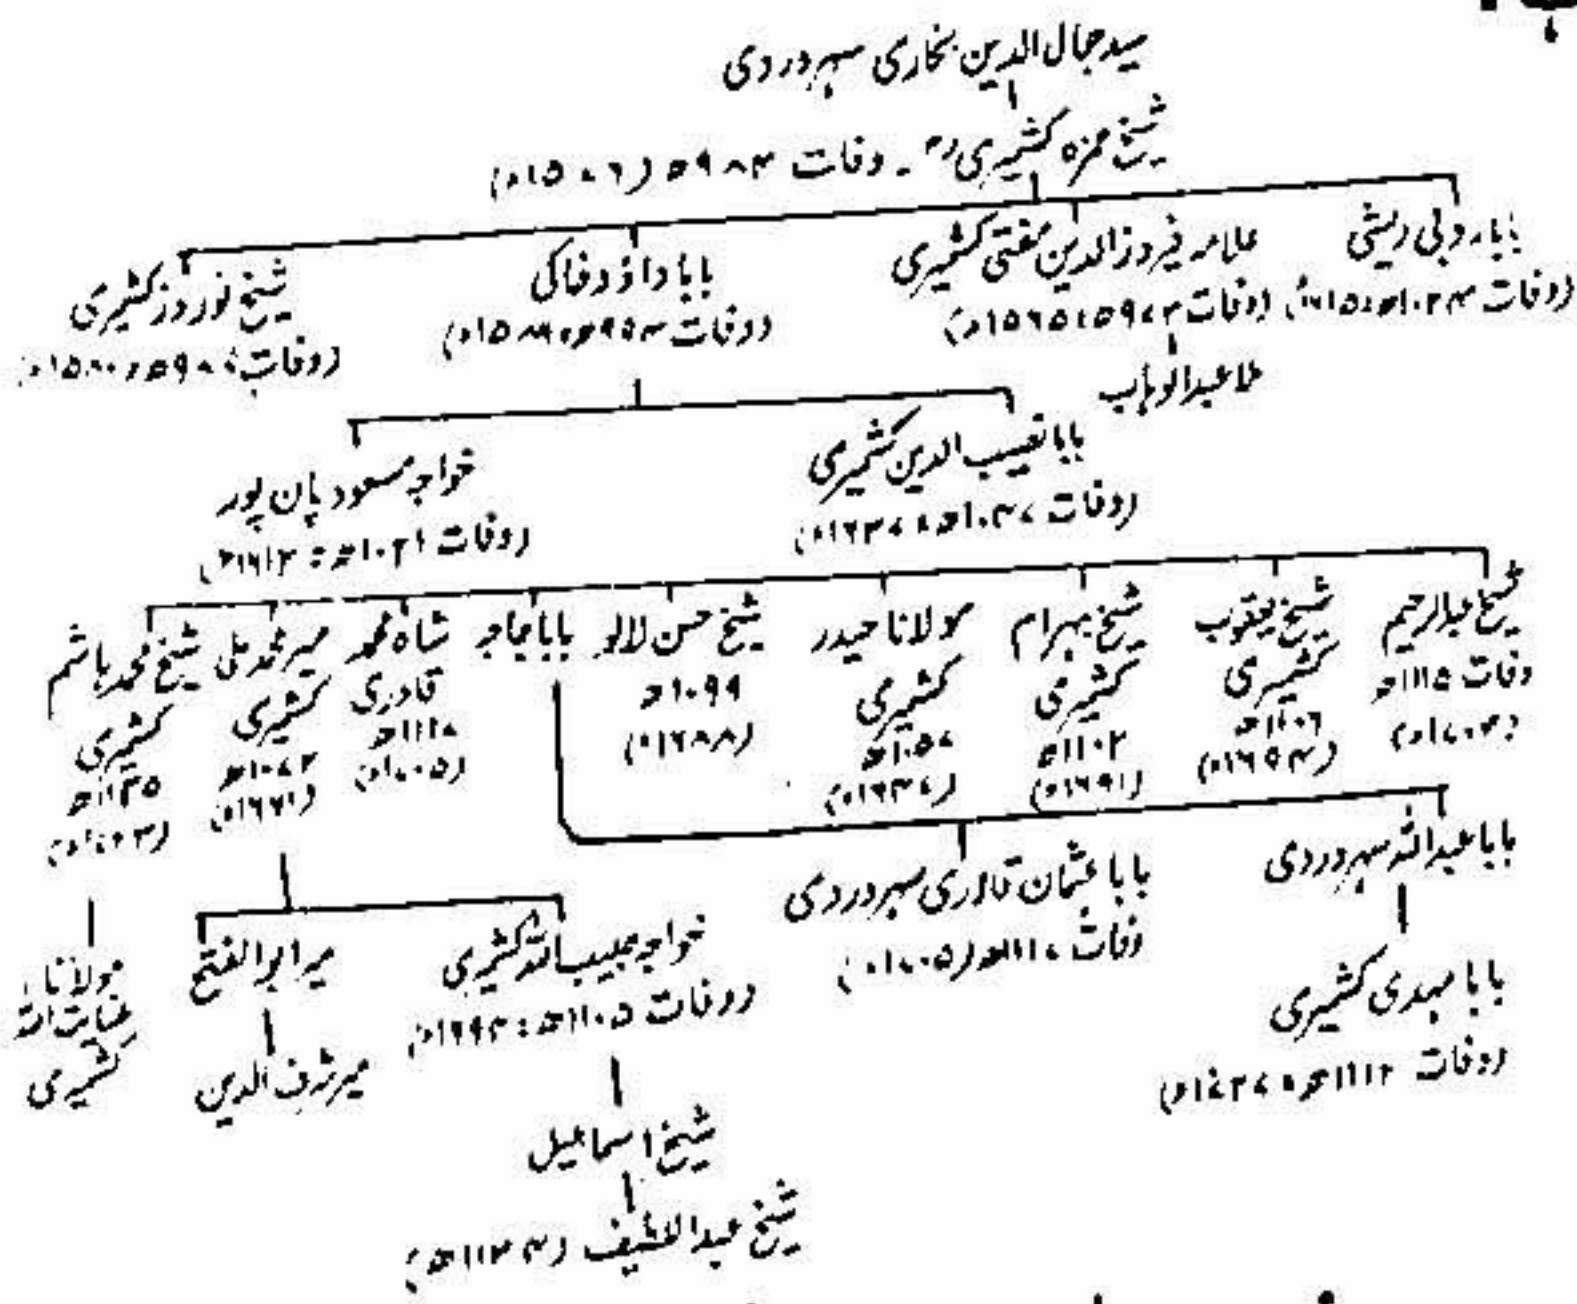 سید جمال الدین بخاری سہروردی
شیخ حمزہ کشمیریؒ ۔ وفات ۹۸۴ھ (۱۵۷۶ء)
بابا روپی ریشی
(وفات ۱۰۲۴ھ، ۱۶۱۵ء)
علامہ فیروز الدین مفتی کشمیری
(وفات ۹۷۳ھ، ۱۵۶۵ء)
ملا عبد الوہاب
بابا داؤد خاکی
(وفات ۹۵۴ھ، ۱۵۸۹ء)
شیخ نوروز کشمیری
(وفات ۹۸۷ھ، ۱۵۸۰ء)
بابا نصیب الدین کشمیری
(وفات ۱۰۴۷ھ، ۱۶۳۷ء)
خواجہ مسعود پان پور
(وفات ۱۰۲۱ھ : ۱۶۱۲ء)
شیخ عبد الرحیم
وفات ۱۱۱۵ھ
(۱۷۰۳ء)
شیخ یعقوب
کشمیری
۱۱۰۶ھ
(۱۶۹۴ء)
شیخ بہرام
کشمیری
۱۱۰۲ھ
(۱۶۹۱ء)
مولانا حیدر
کشمیری
۱۰۵۷ھ
(۱۶۴۷ء)
شیخ حسن لالو
۱۰۹۹ھ
(۱۶۸۸ء)
بابا
شاہ محمد
قادری
۱۱۱۷ھ
(۱۷۰۵ء)
میر محمد علی
کشمیری
۱۰۷۲ھ
(۱۶۶۱ء)
شیخ محمد ہاشم
کشمیری
۱۱۳۵ھ
بابا عبد اللہ سہروردی
بابا مہدی کشمیری
(وفات ۱۱۱۲ھ، ۱۷۳۷ء)
بابا عثمان قادری سہروردی
وفات ۱۱۱۷ھ (۱۷۰۵ء)
خواجہ حبیب اللہ کشمیری
(وفات ۱۱۰۵ھ : ۱۶۹۳ء)
شیخ اسماعیل
شیخ عبد اللطیف (۱۱۳۴ھ)
میر ابو الفتح
میر شرف الدین
مولانا
عنایت اللہ
کشمیری